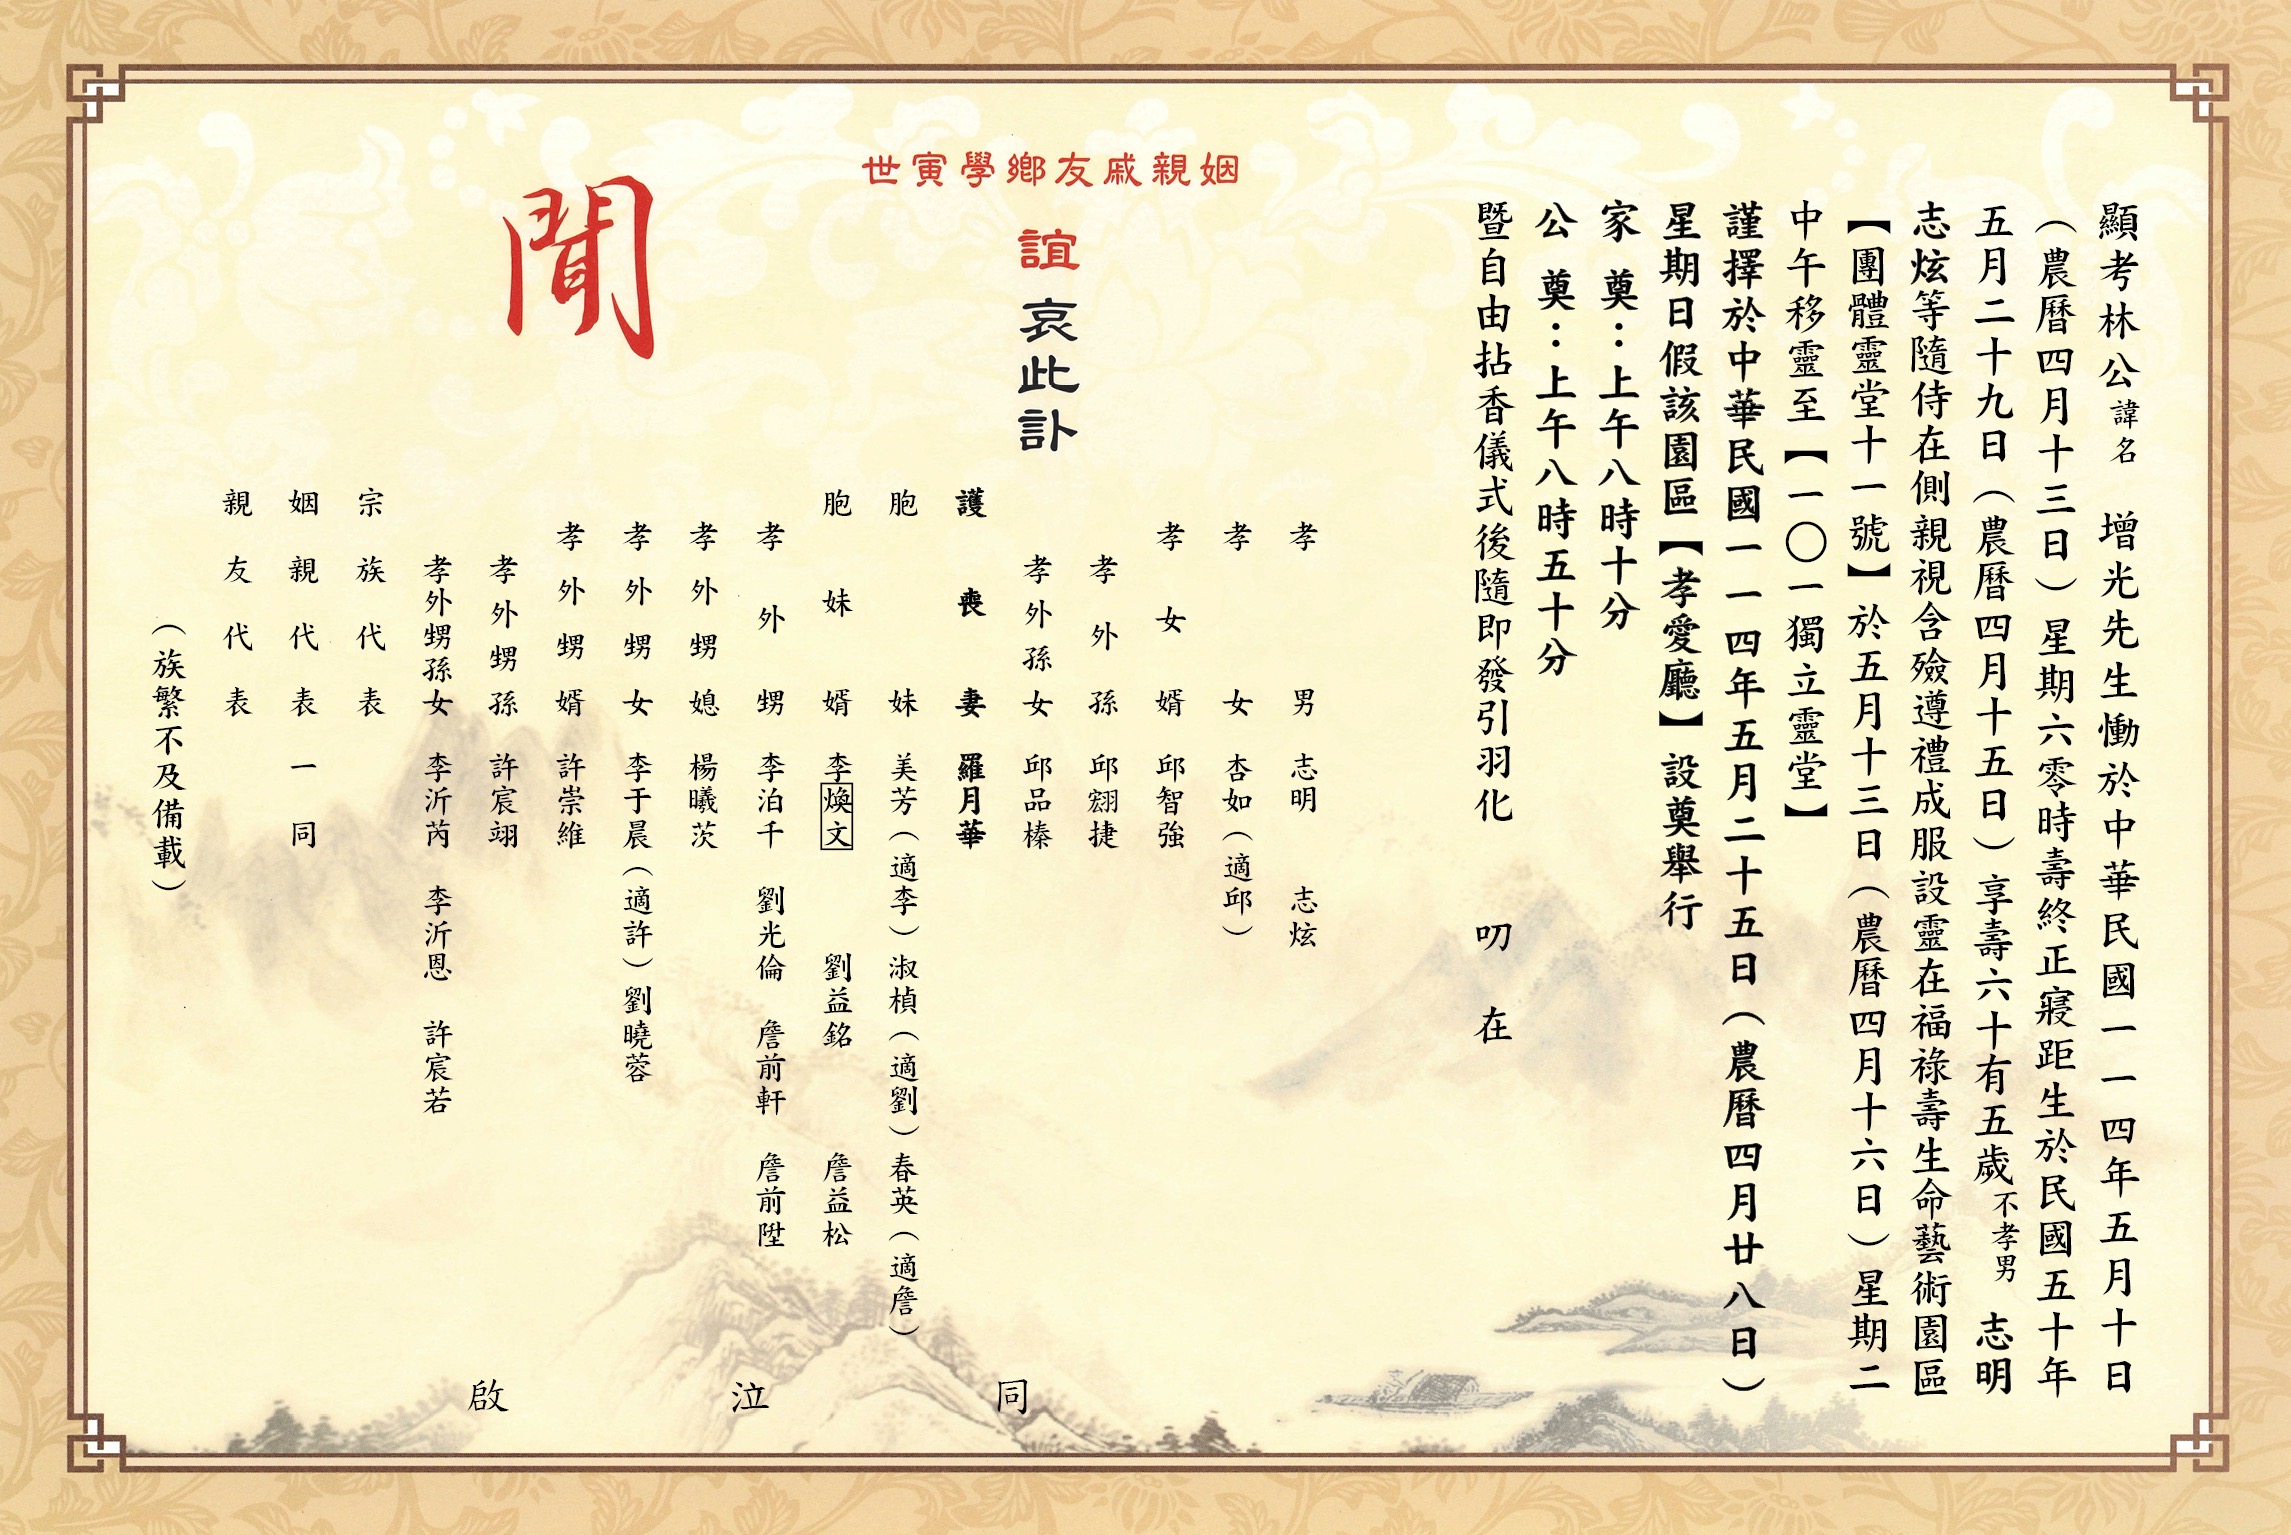 顯考林公諱名 增光先生慟於中華民國一一四年五月十日
（農曆四月十三日）星期六零時壽終正寢距生於民國五十年
五月二十九日（農曆四月十五日）享壽六十有五歲不孝男 志明
志炫等隨侍在側親視含殮遵禮成服設靈在福祿壽生命藝術園區
【團體靈堂十一號】於五月十三日（農曆四月十六日）星期二
中午移靈至【一〇一獨立靈堂】
謹擇於中華民國一一四年五月二十五日（農曆四月廿八日）
星期日假該園區【孝愛廳】設奠舉行
家 奠：上午八時十分
公 奠：上午八時五十分
暨自由拈香儀式後隨即發引羽化 叨 在
姻親戚友鄉學寅世
誼 哀此訃
聞
孝男 志明 志炫
孝女 杏如（適邱）
孝女婿 邱智強
孝外孫 邱翗捷
孝外孫女 邱品榛
護喪妻 羅月華
胞妹 美芳（適李）淑楨（適劉）春英（適詹）
胞妹婿 李煥文 劉益銘 詹益松
孝外甥 李泊千 劉光倫 詹前軒 詹前陞
孝外甥媳 楊曦茨
孝外甥女 李于晨（適許）劉曉蓉
孝外甥婿 許崇維
孝外甥孫 許宸翊
孝外甥孫女 李沂芮 李沂恩 許宸若
宗族代表
姻親代表 一同
親友代表
（族繁不及備載）
同泣啟